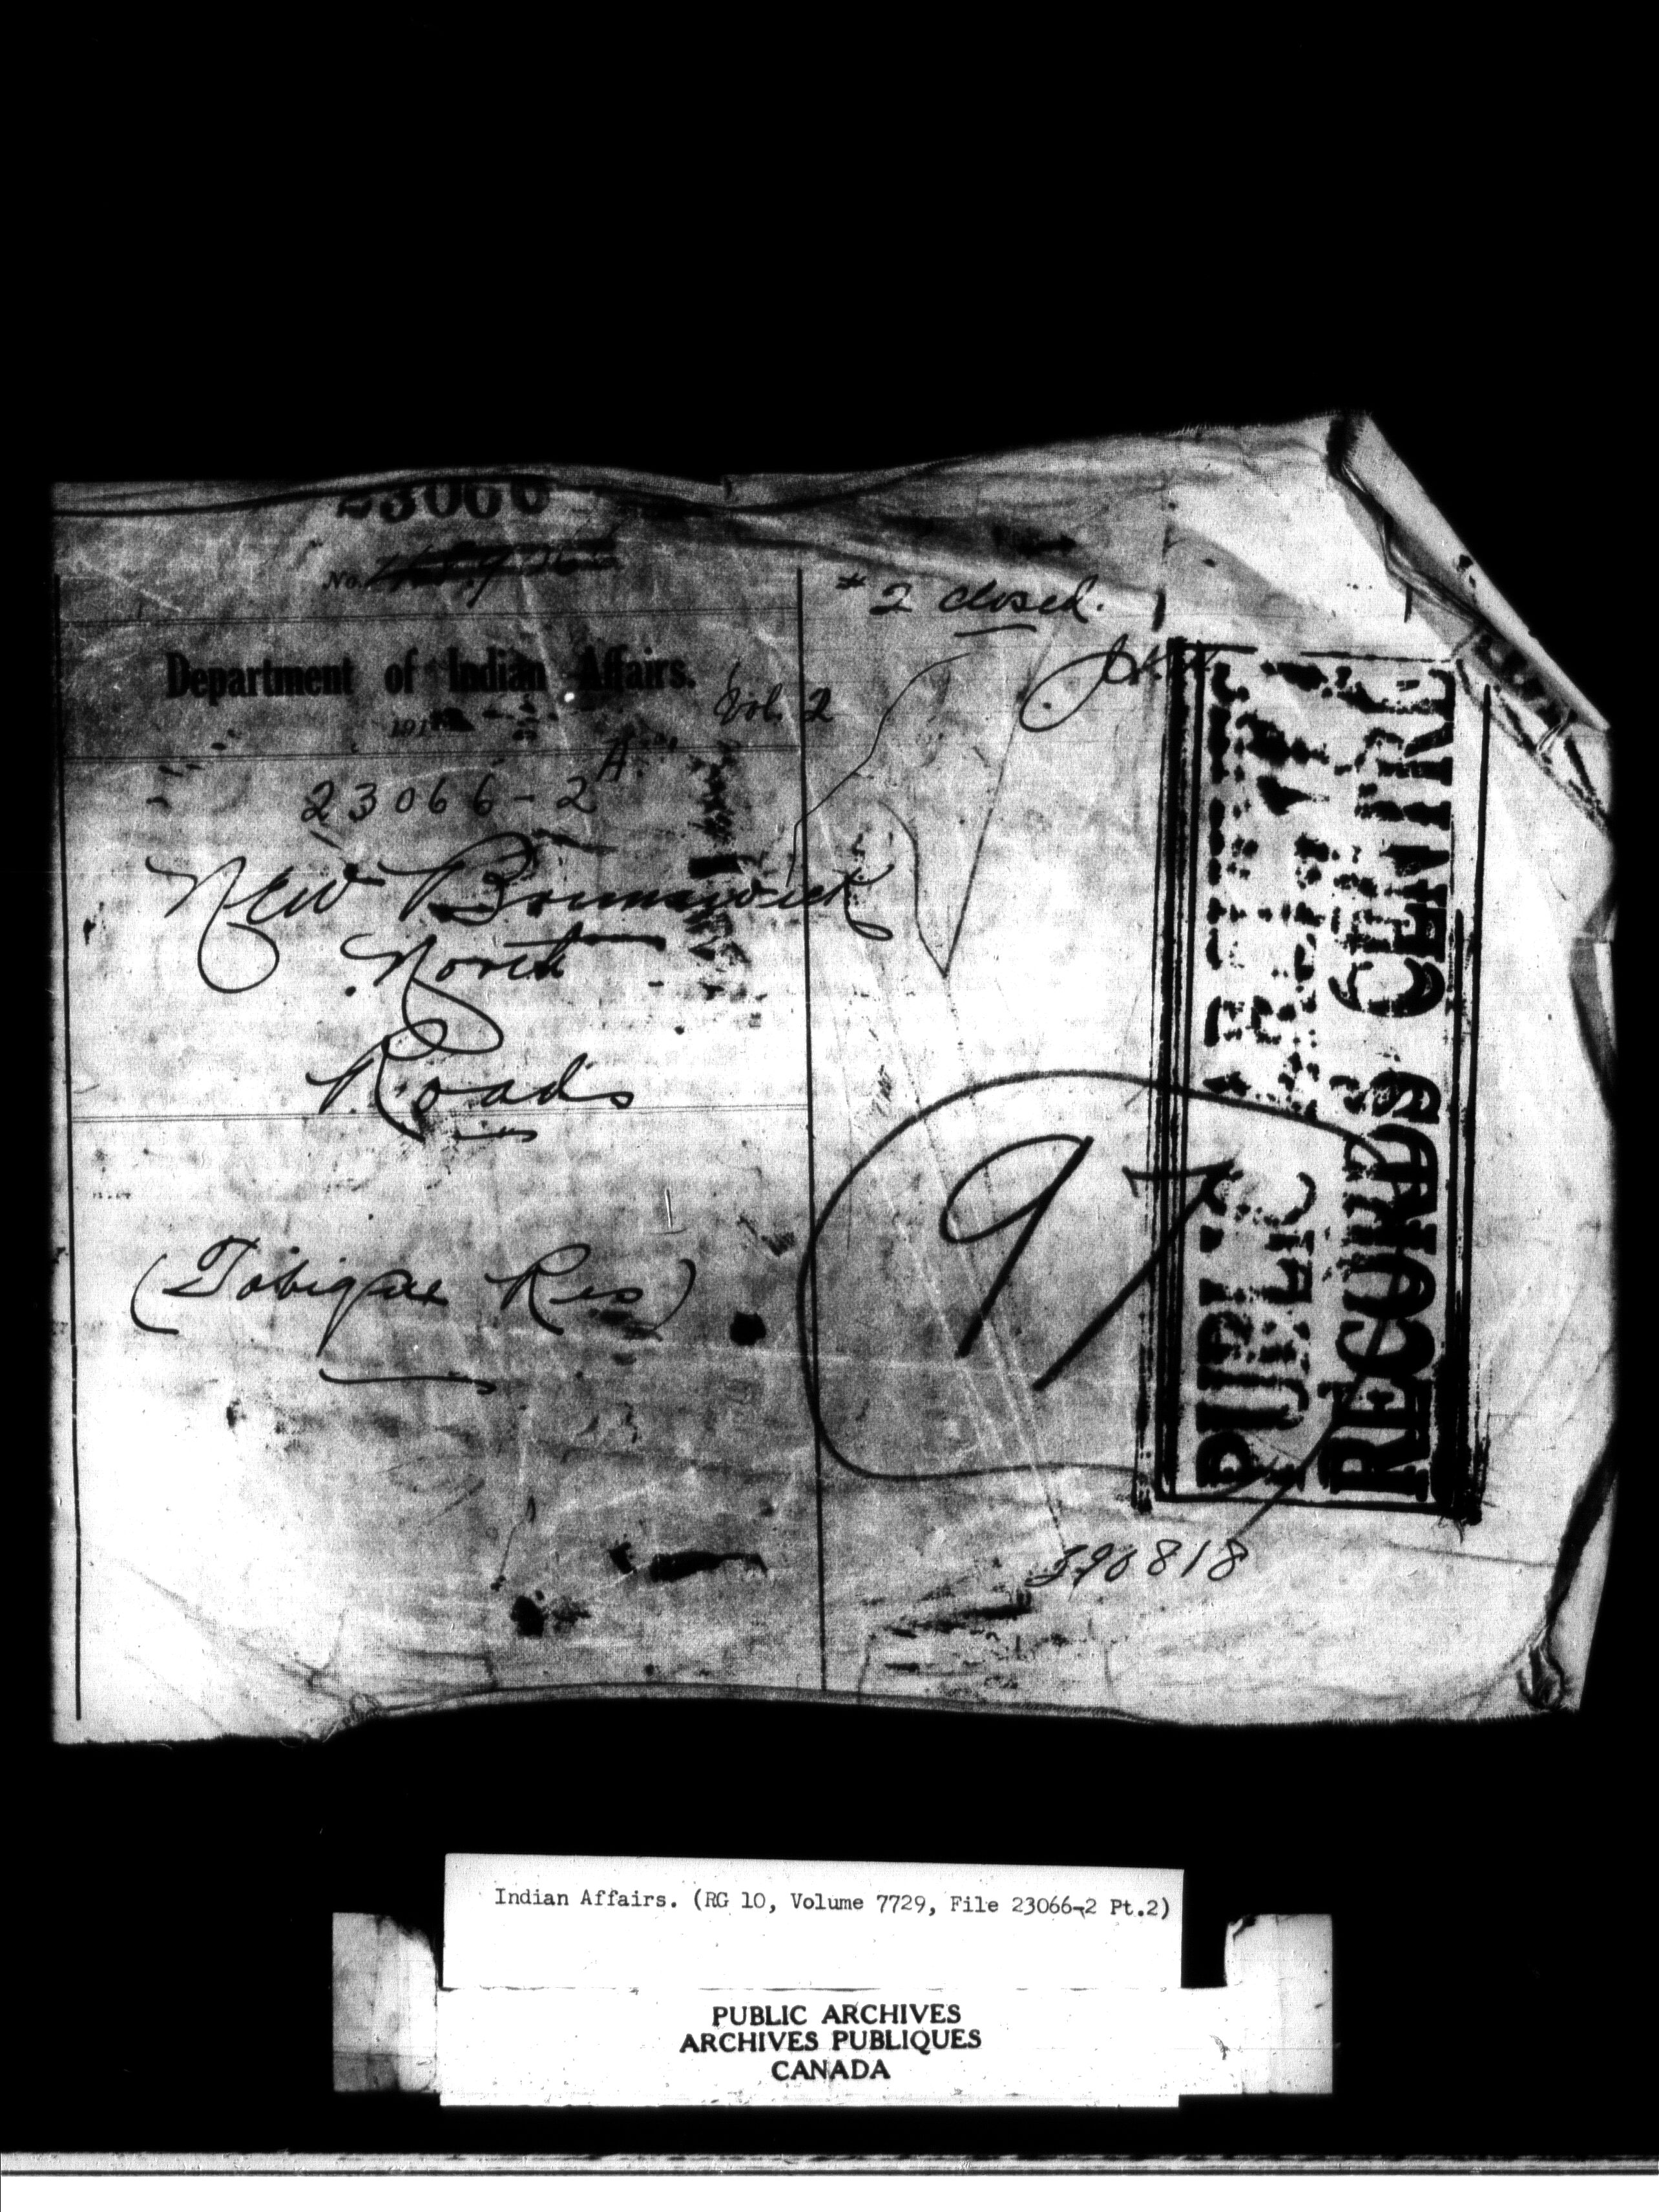 23066
No.
Department of Indian Affairs.
191
Vol. 2
23066-2 A
New Brunswick
North
Roads
(Tobique Res)
# 2 closed.
97
PUBLIC ARCHIVES
RECORDS CENTRE
390818
Indian Affairs. (RG 10, Volume 7729, File 23066-2 Pt.2)
PUBLIC ARCHIVES
ARCHIVES PUBLIQUES
CANADA